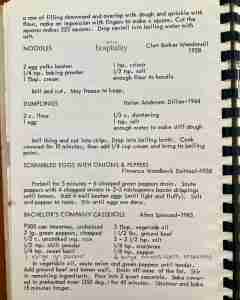 a row of filling downward and overlap with dough and sprinkle with
flour, make an impression with fingers to make a square. Cut the
squares makes 225 squares. Drop ravioli into boiling water with
salt.
NOODLES
hospitality
Clori Barker Woodmnell
1928
2 egg yolks beaten
1/4 tsp. baking powder
1 Tbsp. cream
1 tsp. crisco
1/2 tsp. salt
enough flour to handle
Roll and cut. May freeze to keep.
DUMPLINGS
Helen Anderson Dillner-1944
2 c. flour
1 egg
1/2 c. shortening
1 tsp. salt
enough water to make stiff dough
Roll thing and cut into strips. Drop into boiling broth. Cook
covered for 10 minutes, then add 1/2 cup cream and bring to boiling
point.
SCRAMBLED EGGS WITH ONIONS & PEPPERS
Florence Woodbeck
Parboil for 5 minutes - 6 chopped green peppers drain. Saute
peppers with 6 chopped onions in
until brown. Add 4 well beaten eggs (until light and fluffy). Salt
and pepper to taste. Stir until egg are done.
BACHELOR'S COMPANY CASSEROLE
1965
2 lg. green peppers, chopped
1/2 c. uncooked reg. rice
1/2 tsp. chili powder
1/4 tsp. sweet basil
3 Tbsp. vegetable oil
1 1/2 lbs. ground beef
2 - 2 1/2 tsp. salt
1/8 tsp. marjoram
1/8 tsp. pepper
In vegetable oil, saute onion and green peppers until tender.
Add ground beef and brown well. Drain off some of the fat. Stir
in remaining ingredients. Pour into 2 quart casserole. Bake cover-
ed in preheated oven (350 deg.) for 45 minutes. Uncover and bake
15 minutes longer.